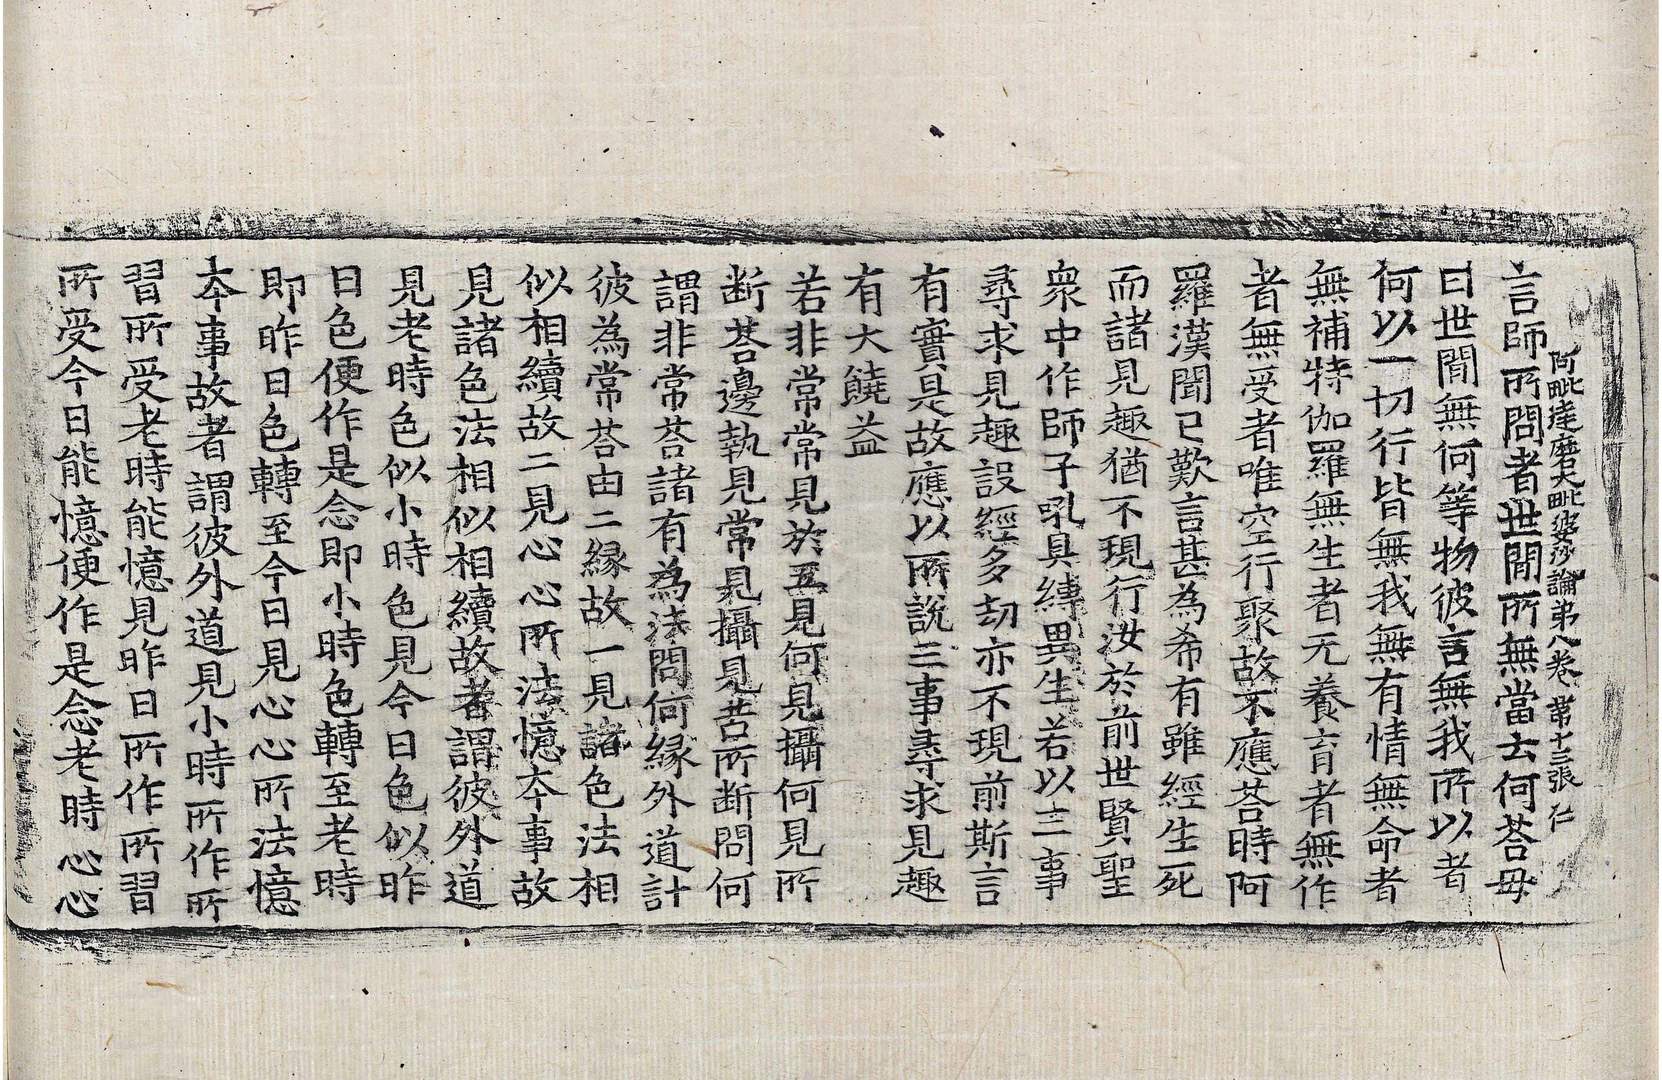 阿毗達磨大毗婆沙論第八卷 第十三張 仁
言師所問者世間所無當去何荅毋
曰世間無何等物彼言無我所以者
何以一切行皆無我無有情無命者
無補特伽羅無生者无養育者無作
者無受者唯空行聚故不應荅時阿
羅漢聞已歎言甚為希有雖經生死
而諸見趣猶不現行汝於前世賢聖
衆中作師子吼具縛異生若以三事
尋求見趣設經多劫亦不現前斯言
有實是故應以所說三事尋求見趣
有大饒益
若非常常見於五見何見攝何見所
断荅邊執見常見攝見苦所断問何
謂非常荅諸有為法問何緣外道計
彼為常荅由二緣故一見諸色法相
似相續故二見心心所法憶本事故
見諸色法相似相續故者謂彼外道
見老時色似小時色見今日色似昨
日色便作是念即小時色轉至老時
即昨日色轉至今日見心心所法憶
本事故者謂彼外道見小時所作所
習所受老時能憶見昨日所作所習
所受今日能憶便作是念老時心心